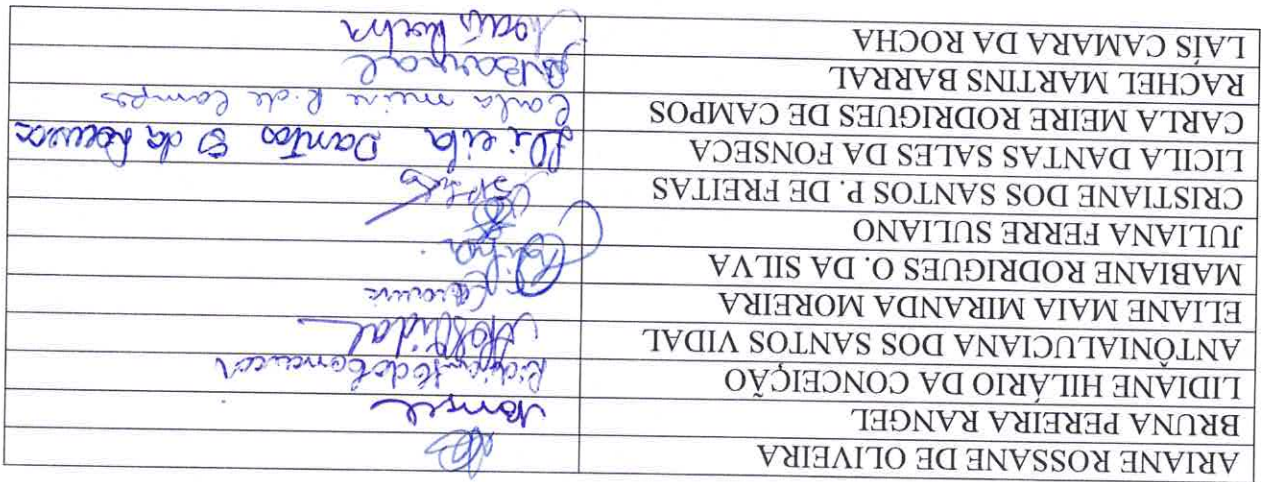 ARIANE ROSSANE DE OLIVEIRA
BRUNA PEREIRA RANGEL Rangel
LIDIANE HILÁRIO DA CONCEIÇÃO
ANTÔNIALUCIANA DOS SANTOS VIDAL Vidal
ELIANE MAIA MIRANDA MOREIRA
MABIANE RODRIGUES O. DA SILVA
JULIANA FERRE SULIANO
CRISTIANE DOS SANTOS P. DE FREITAS
LICILA DANTAS SALES DA FONSECA Licila Dantas S da Fonseca
CARLA MEIRE RODRIGUES DE CAMPOS Carla meire R. de Campos
RACHEL MARTINS BARRAL Barral
LAÍS CAMARA DA ROCHA Laís Rocha